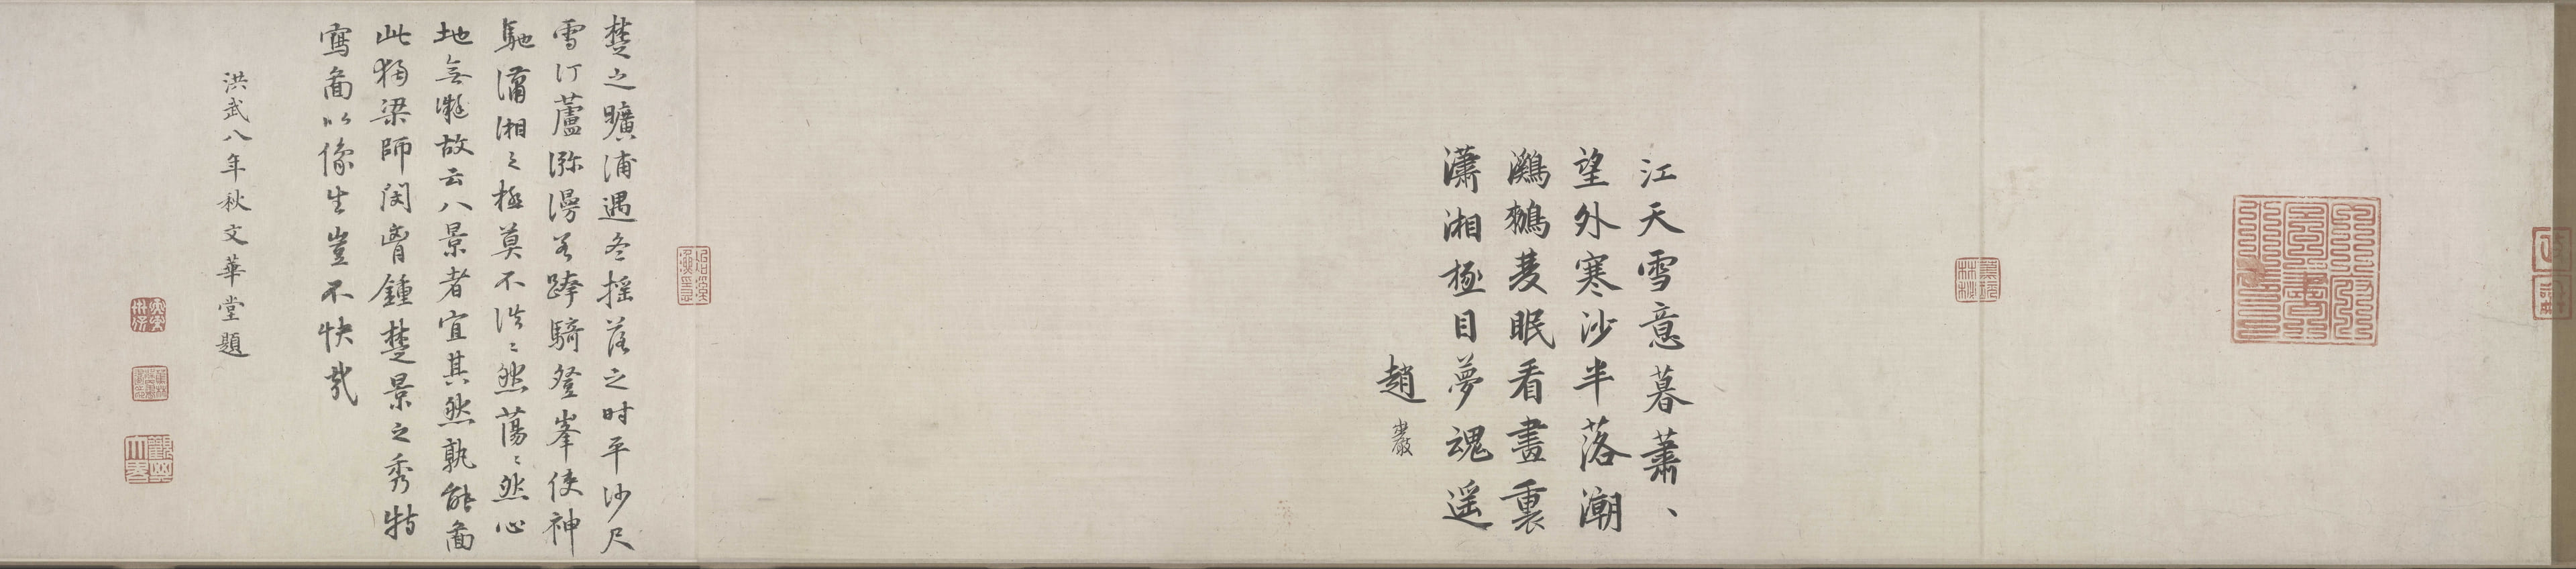 江天雪意暮蕭〻
望外寒沙半落潮
鸂鶒蔆眠看畫裏
瀟湘極目夢魂遥
趙巖
楚之曠浦遇冬摇落之时平沙尺
雪汀蘆瀰漫若跨騎登峯使神
馳瀟湘之極莫不浩〻然蕩〻然心
地無礙故云八景者宜其然孰能啚
此獨梁師閔胷鍾楚景之秀特
寫啚以像生豈不快哉
洪武八年秋文華堂題